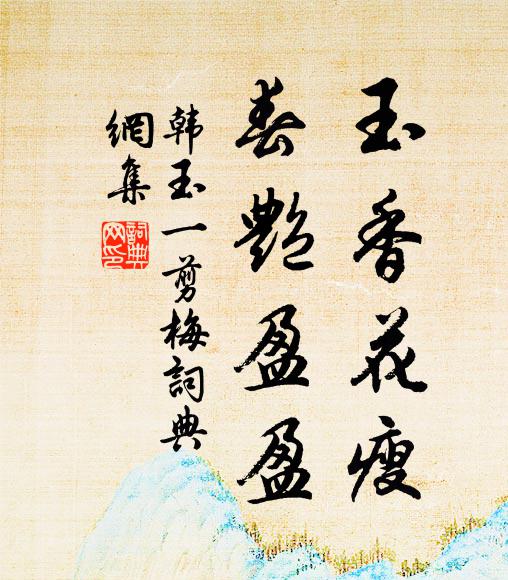 玉香花瘦
春艷盈盈
韩玉一剪梅詞典
網集
詞典网印